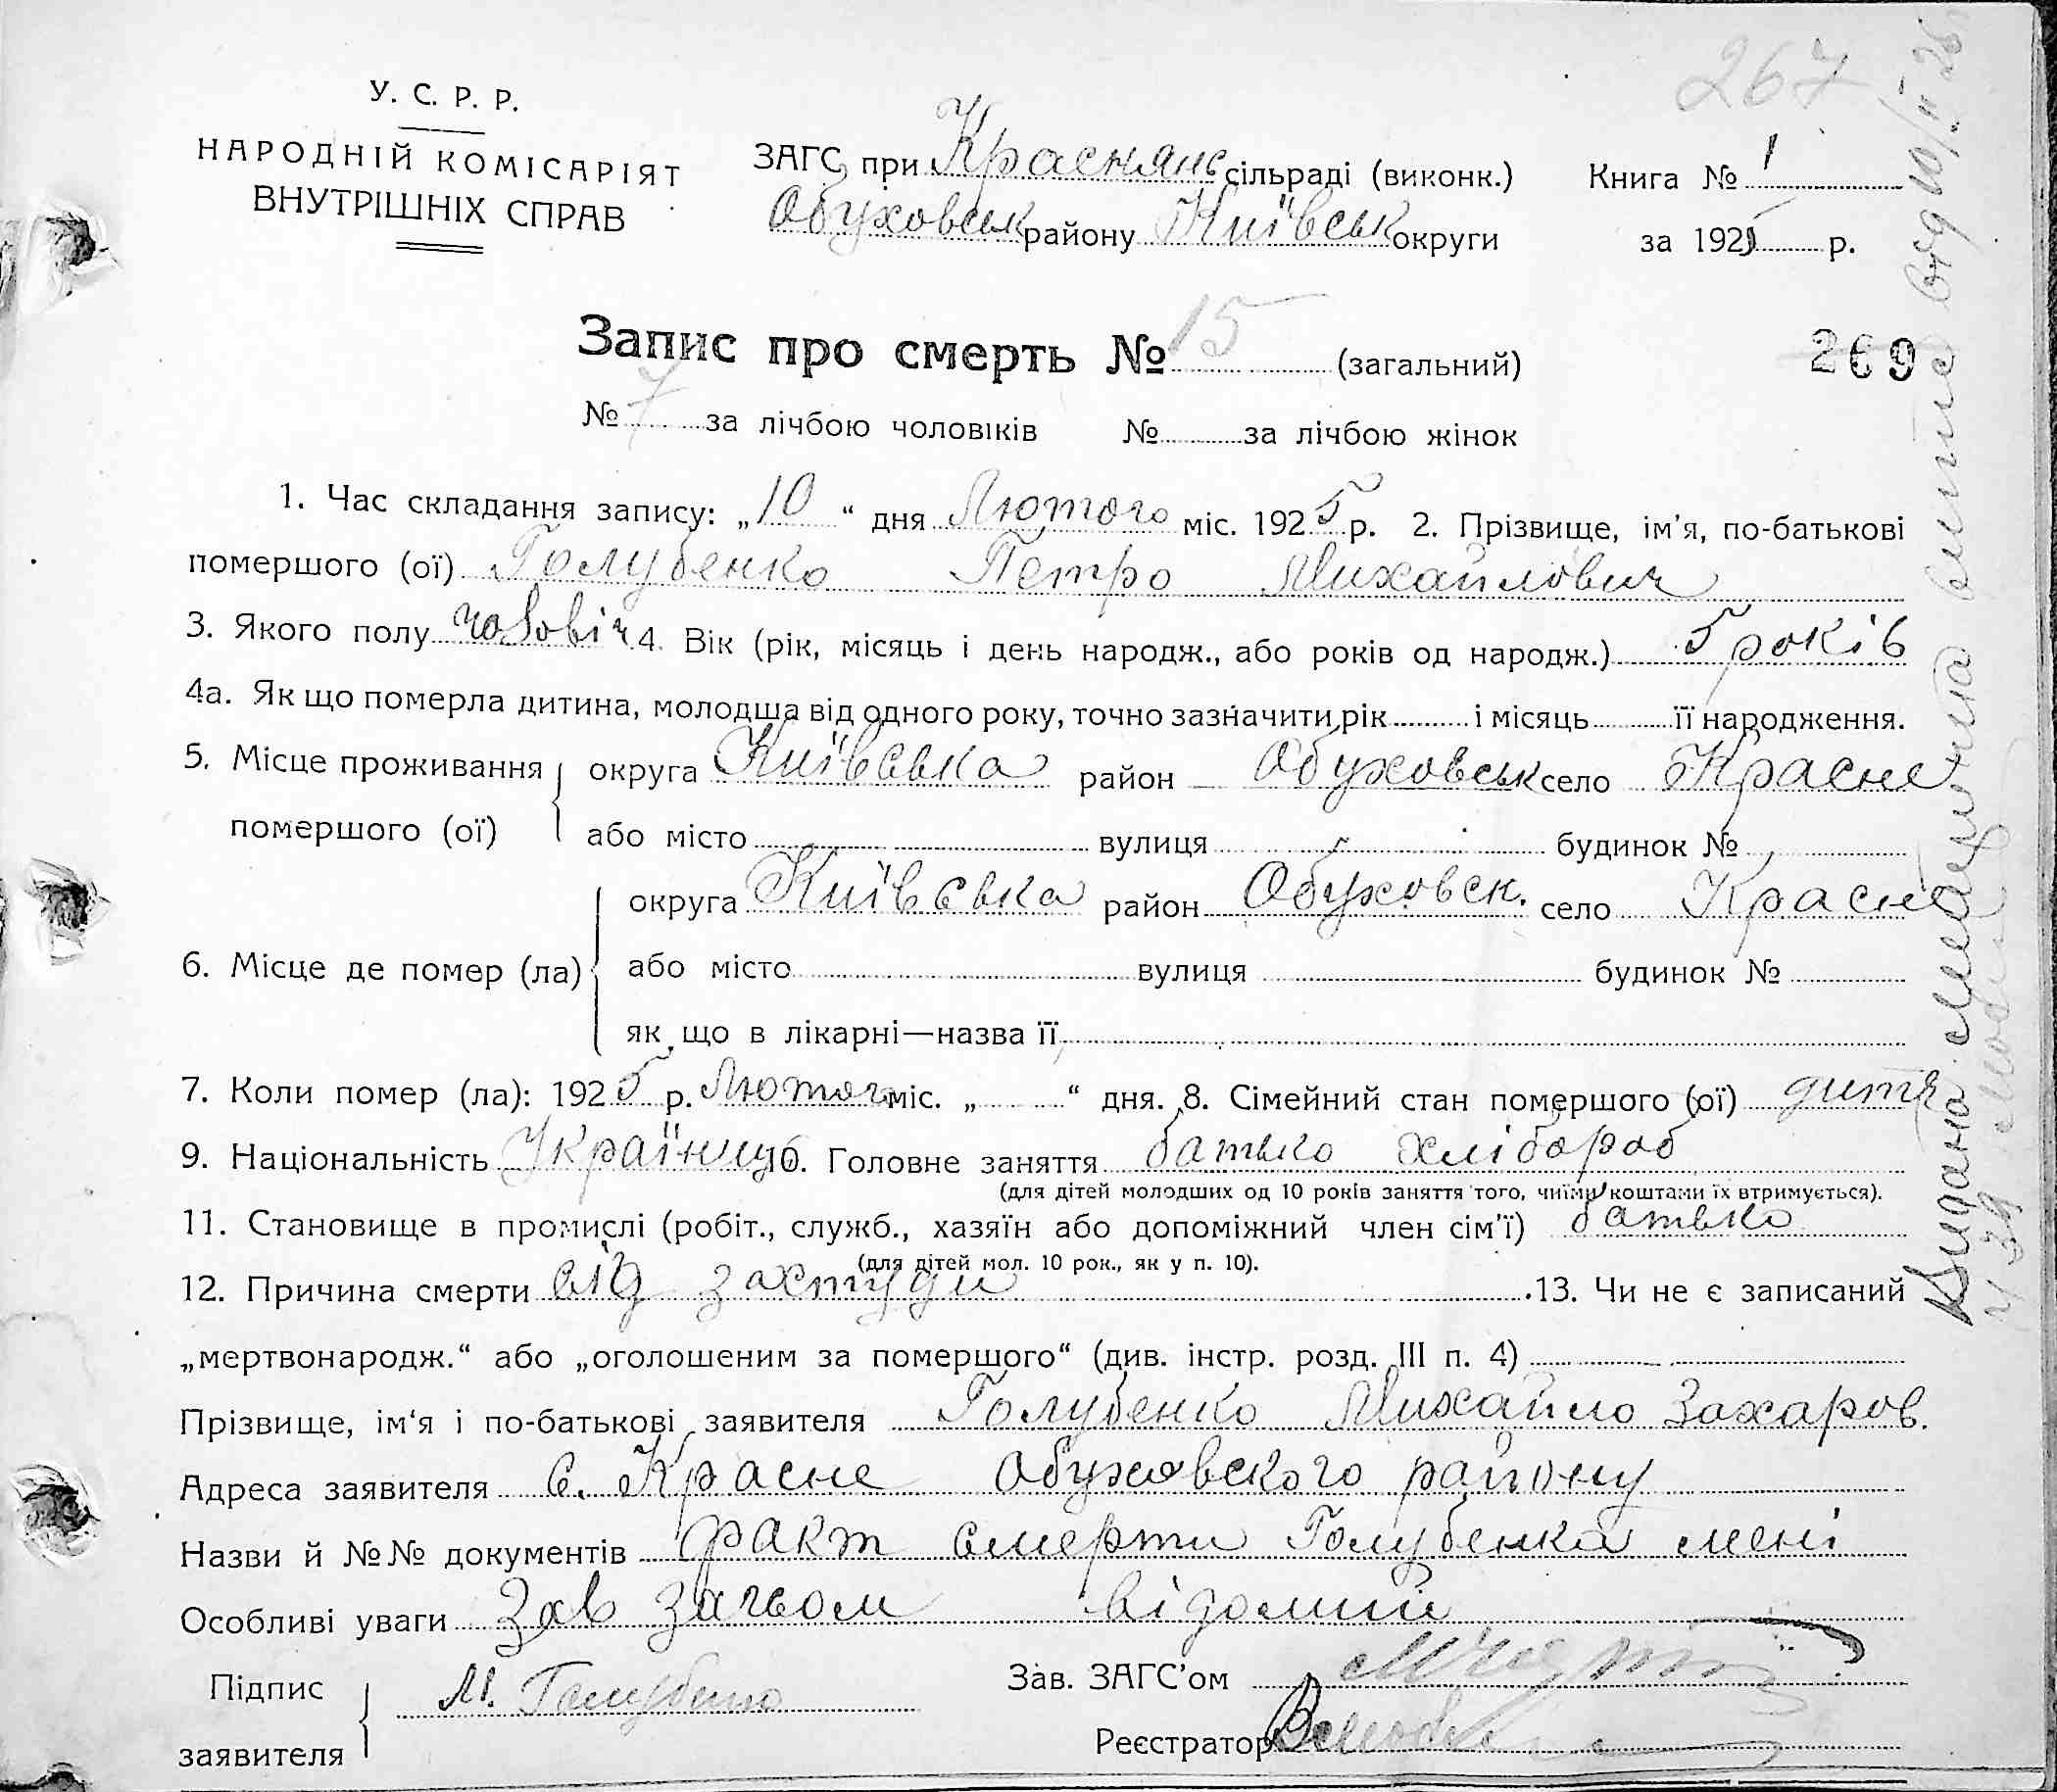 267
У. С. Р. Р.
НАРОДНІЙ КОМІСАРІЯТ
ВНУТРІШНІХ СПРАВ
ЗАГС при Краснянс сільраді (виконк.)
Обуховськ району Київськ округи
Книга № 1
за 1925 р.
Запис про смерть № 15 (загальний)
269
№ 7 за лічбою чоловіків № за лічбою жінок
1. Час складання запису: „10“ дня Лютого міс. 1925 р. 2. Прізвище, ім'я, по-батькові
помершого (ої) Голубенко Петро Михайлович
3. Якого полу чоловіч 4. Вік (рік, місяць і день народж., або років од народж.) 5 років
4а. Як що померла дитина, молодша від одного року, точно зазначити рік і місяць її народження.
5. Місце проживання округа Київська район Обуховськ село Красне
помершого (ої) або місто вулиця будинок №
округа Київська район Обуховськ. село Красне
6. Місце де помер (ла) або місто вулиця будинок №
як що в лікарні—назва її
7. Коли помер (ла): 1925 р. Лютого міс. „ “ дня. 8. Сімейний стан помершого (ої) дитя
9. Національність Українец 10. Головне заняття батько хлібороб
(для дітей молодших од 10 років заняття того, чиїми коштами їх втримується).
11. Становище в промислі (робіт., служб., хазяїн або допоміжний член сім'ї) батько
(для дітей мол. 10 рок., як у п. 10).
12. Причина смерти від застуди 13. Чи не є записаний
„мертвонародж.“ або „оголошеним за помершого“ (див. інстр. розд. III п. 4)
Прізвище, ім'я і по-батькові заявителя Голубенко Михайло Захаров.
Адреса заявителя с. Красне Обуховского району
Назви й №№ документів факт смерти Голубенка мені
Особливі уваги Зав Загсом відомий
Підпис заявителя М. Голубенко
Зав. ЗАГС'ом
Реєстратор
Видана випис від 10/II 26